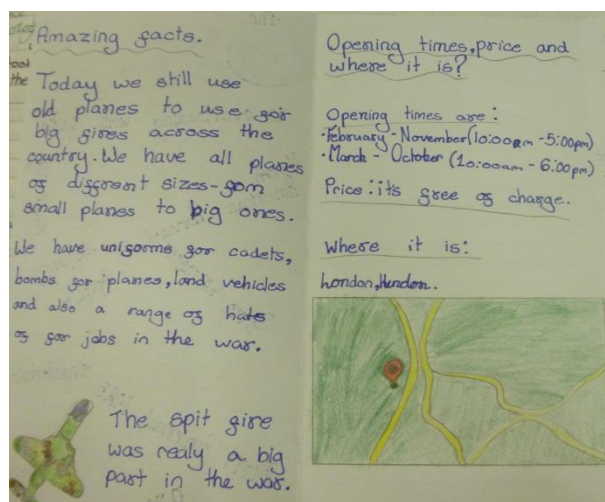 Amazing facts.
Today we still use
old planes to use for
big fires across the
country. We have all planes
of different sizes-from
small planes to big ones.
We have uniforms for cadets,
bombs for planes, land vehicles
and also a range of hats
of for jobs in the war.
The spit fire
was realy a big
part in the war.
Opening times, price and
where it is?
Opening times are:
·February - November (10:00am - 5:00pm)
·March - October (10:00am - 6:00pm)
Price: it's free of charge.
Where it is:
London, Hendon..